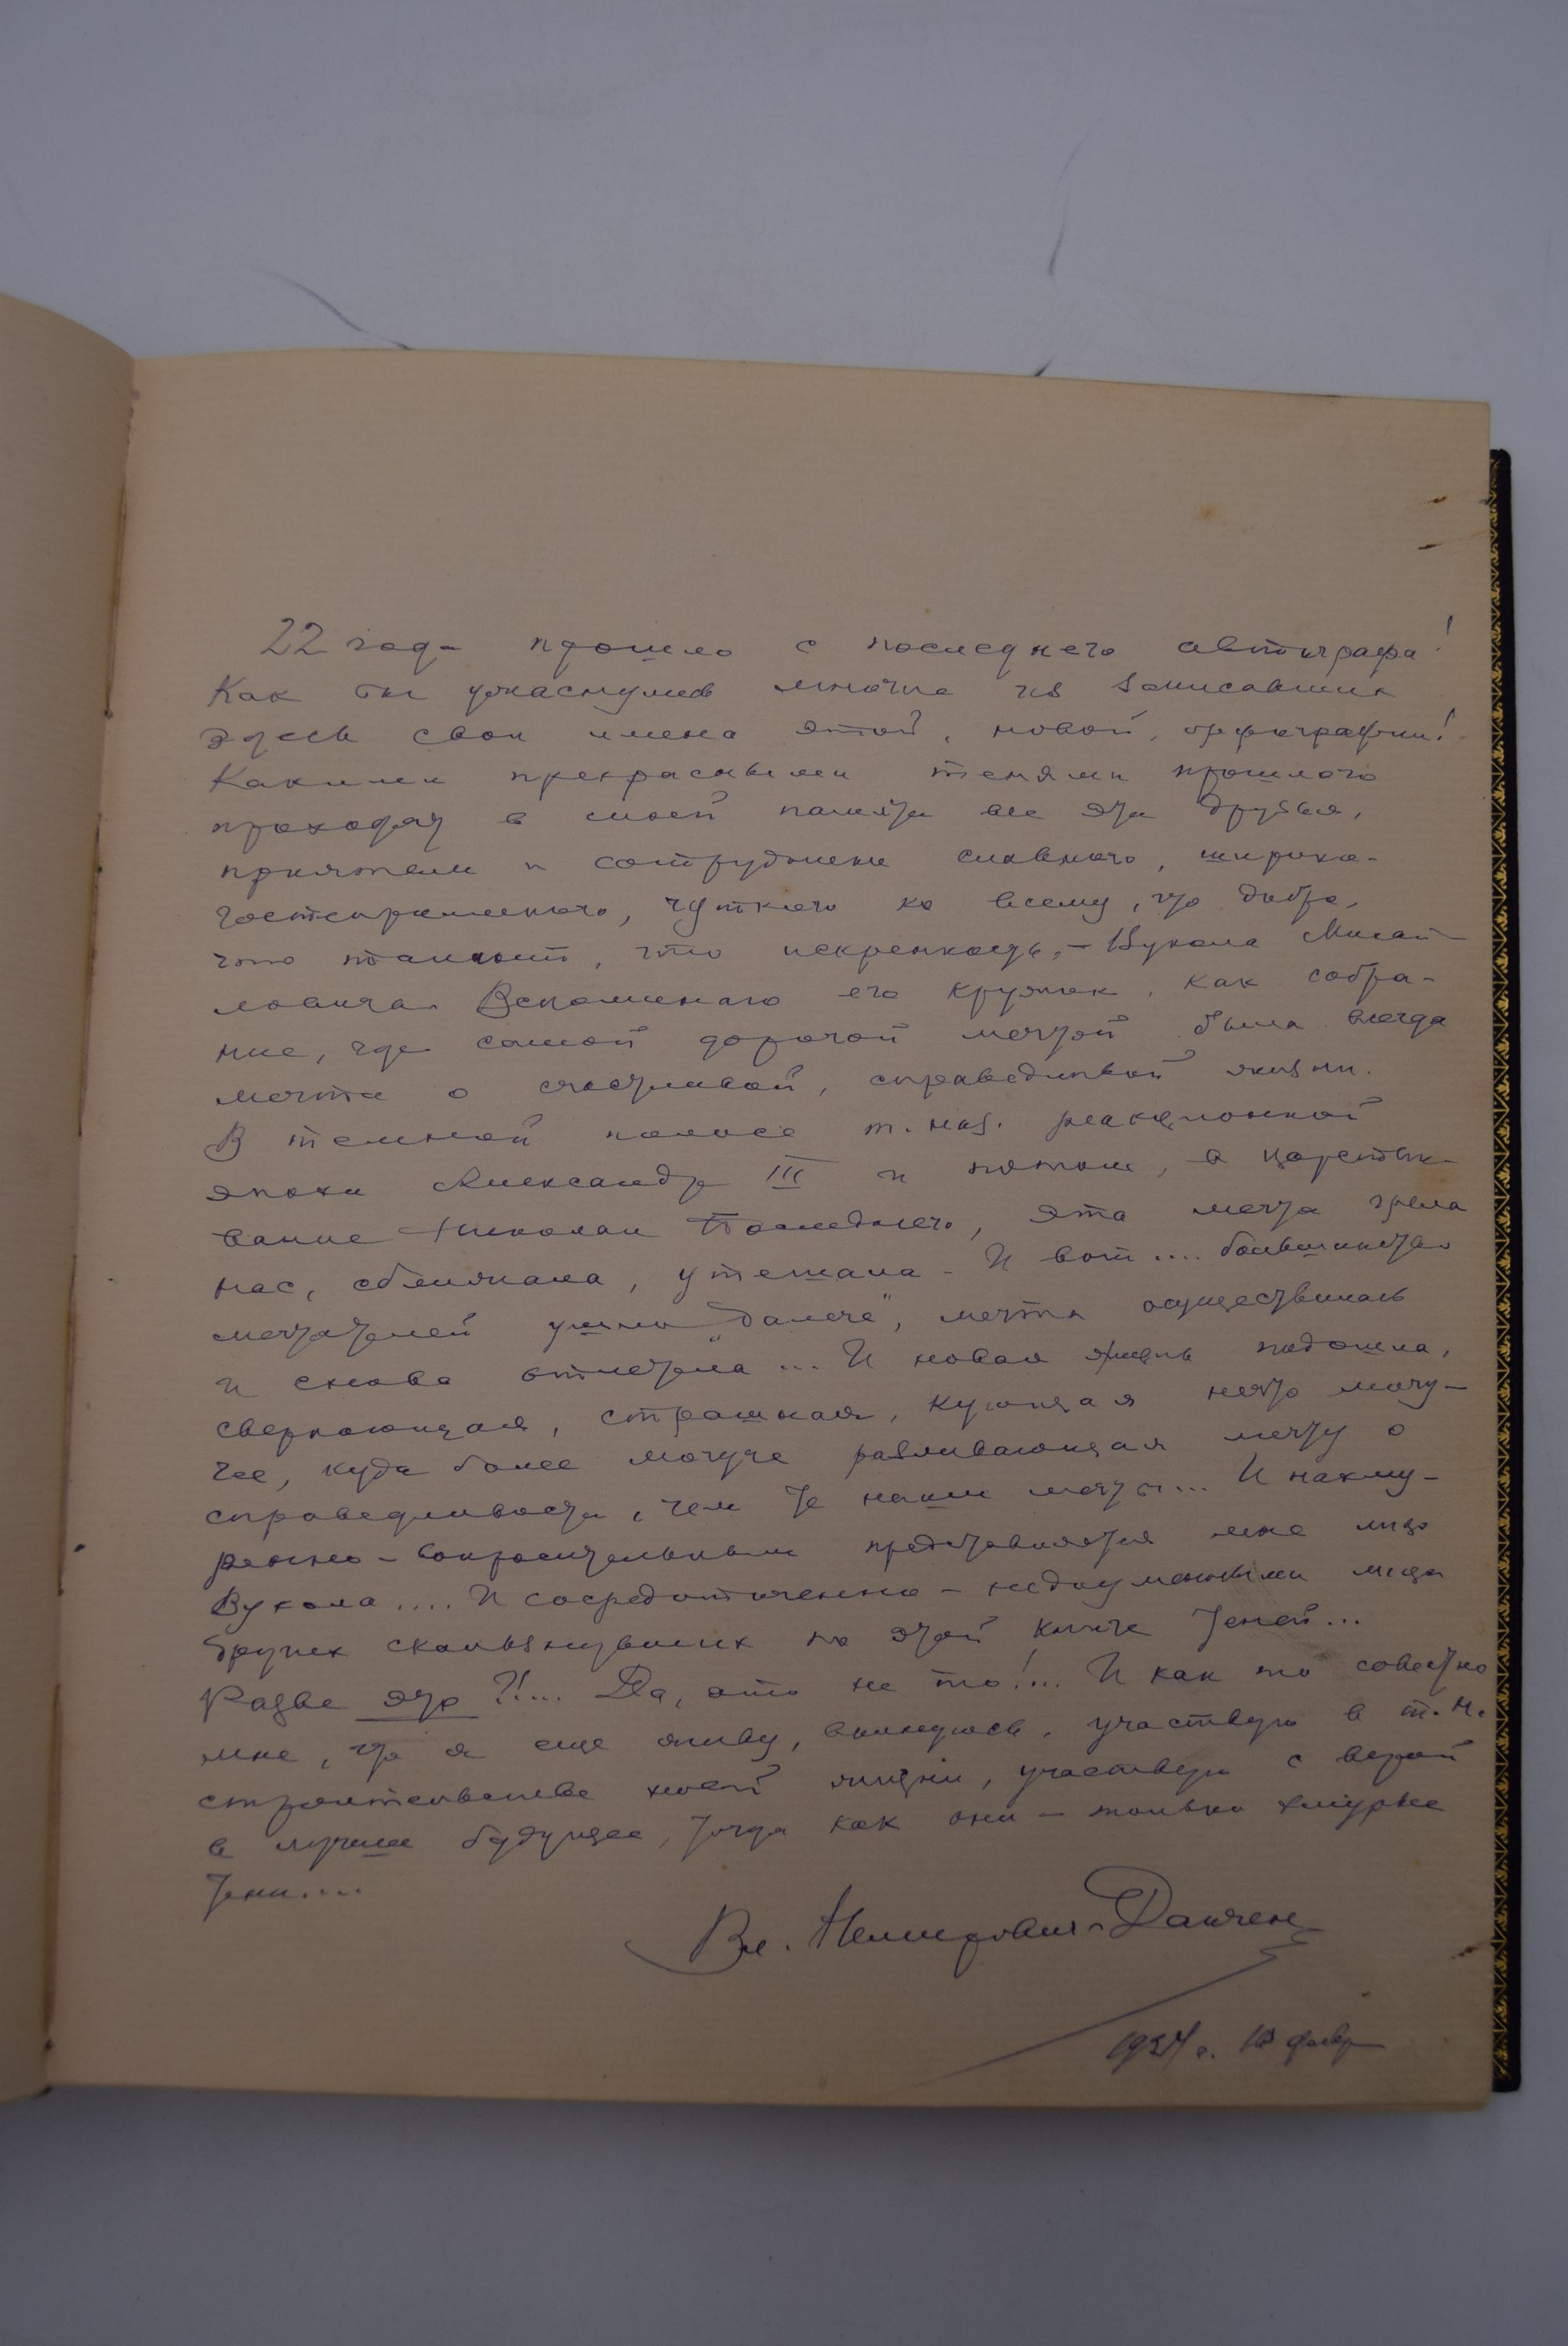 22 года прошло с последнего автографа!
Как бы ужаснулись многие из записавших
здесь свои имена этой, новой, орфографии!
Какими прекрасными тенями прошлого
проходят в моей памяти все эти друзья,
приятели и сотрудники славного, широко-
гостеприимного, чуткого ко всему, что добро,
что талант, что искренность, – Вукола Михай-
ловича. Вспоминаю его кружок, как собра-
ние, где самой дорогой мечтой была всегда
мечта о счастливой, справедливой жизни.
В темной полосе т. наз. реакционной
эпохи Александра III и потом, в царство-
вание Николая Последнего, эта мечта грела
нас, сближала, утешала. И вот .... большинство
мечтателей ушли „далече", мечта осуществилась
и снова отлетела ... И новая жизнь подошла,
сверкающая, страшная, кующая нечто могу-
чее, куда более могуче развивающая мечту о
справедливости, чем те наши мечты... И нахму-
ренно-вопросительным представляется мне лицо
Вукола .... И сосредоточенно-недоуменными лица
других скользнувших по этой книге теней...
Разве это ?!... Да, это не то!... И как то совестно
мне, что я еще живу, волнуюсь, участвую в т.н.
строительстве новой жизни, участвую с верой
в лучшее будущее, тогда как они – только хмурые
тени....
Вл. Немирович-Данченко
1924 г. 13 февр